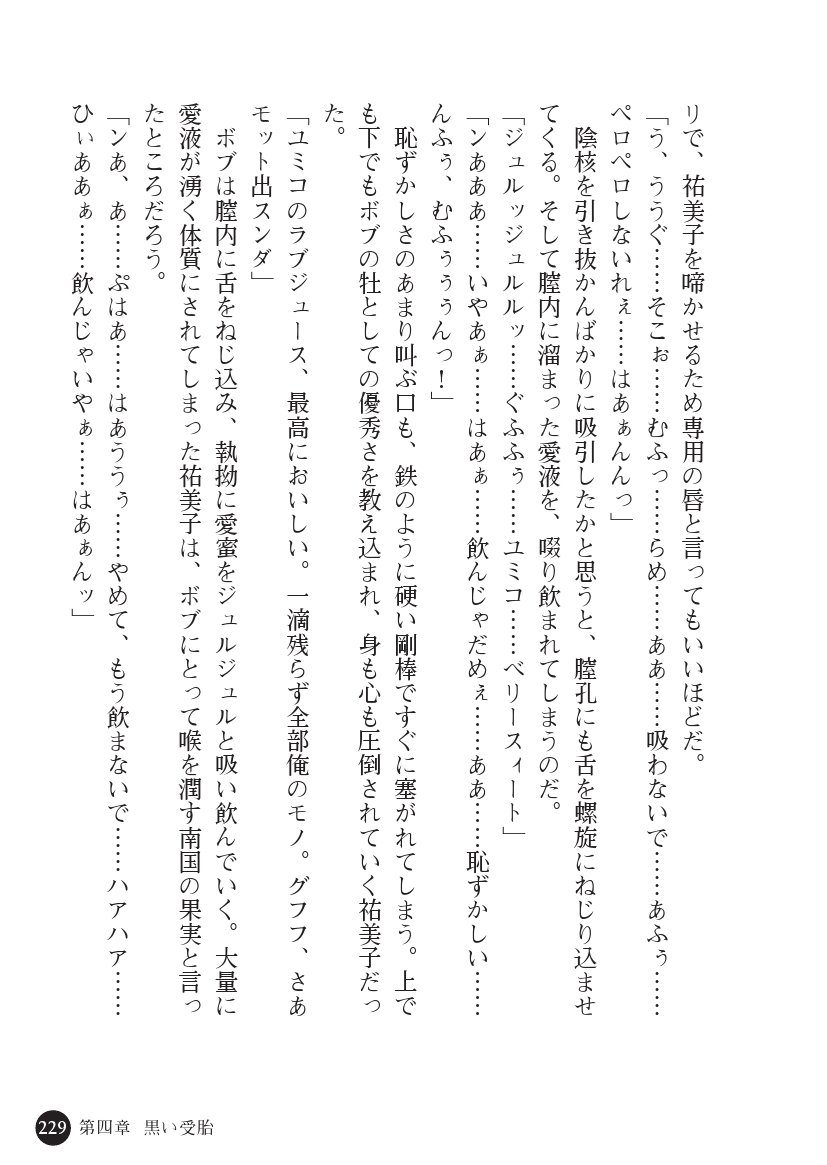 リで、祐美子を啼かせるため専用の唇と言ってもいいほどだ。
「う、ううぐ……そこぉ……むふっ……らめ……ああ……吸わないで……あふぅ……
ペロペロしないれぇ……はあぁんんっ」
　陰核を引き抜かんばかりに吸引したかと思うと、膣孔にも舌を螺旋にねじり込ませ
てくる。そして膣内に溜まった愛液を、啜り飲まれてしまうのだ。
「ジュルッジュルルッ……ぐふふぅ……ユミコ……ベリースィート」
「ンあああ……いやあぁ……はあぁ……飲んじゃだめぇ……ああ……恥ずかしい……
んふぅ、むふぅぅぅんっ！」
　恥ずかしさのあまり叫ぶ口も、鉄のように硬い剛棒ですぐに塞がれてしまう。上で
も下でもボブの牡としての優秀さを教え込まれ、身も心も圧倒されていく祐美子だっ
た。
「ユミコのラブジュース、最高においしい。一滴残らず全部俺のモノ。グフフ、さあ
モット出スンダ」
　ボブは膣内に舌をねじ込み、執拗に愛蜜をジュルジュルと吸い飲んでいく。大量に
愛液が湧く体質にされてしまった祐美子は、ボブにとって喉を潤す南国の果実と言っ
たところだろう。
「ンあ、あ……ぷはあ……はあううぅ……やめて、もう飲まないで……ハアハア……
ひぃああぁ……飲んじゃいやぁ……はあぁんッ」
229 第四章　黒い受胎